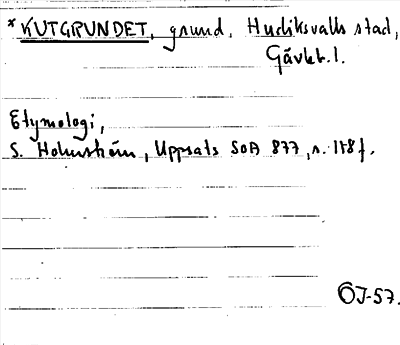 *KUTGRUNDET, grund, Hudiksvalls stad,
Gävleb. l.
Etymologi,
S. Holmström, Uppsats SOÄ 877, s. 118 f.
ÖJ-57.